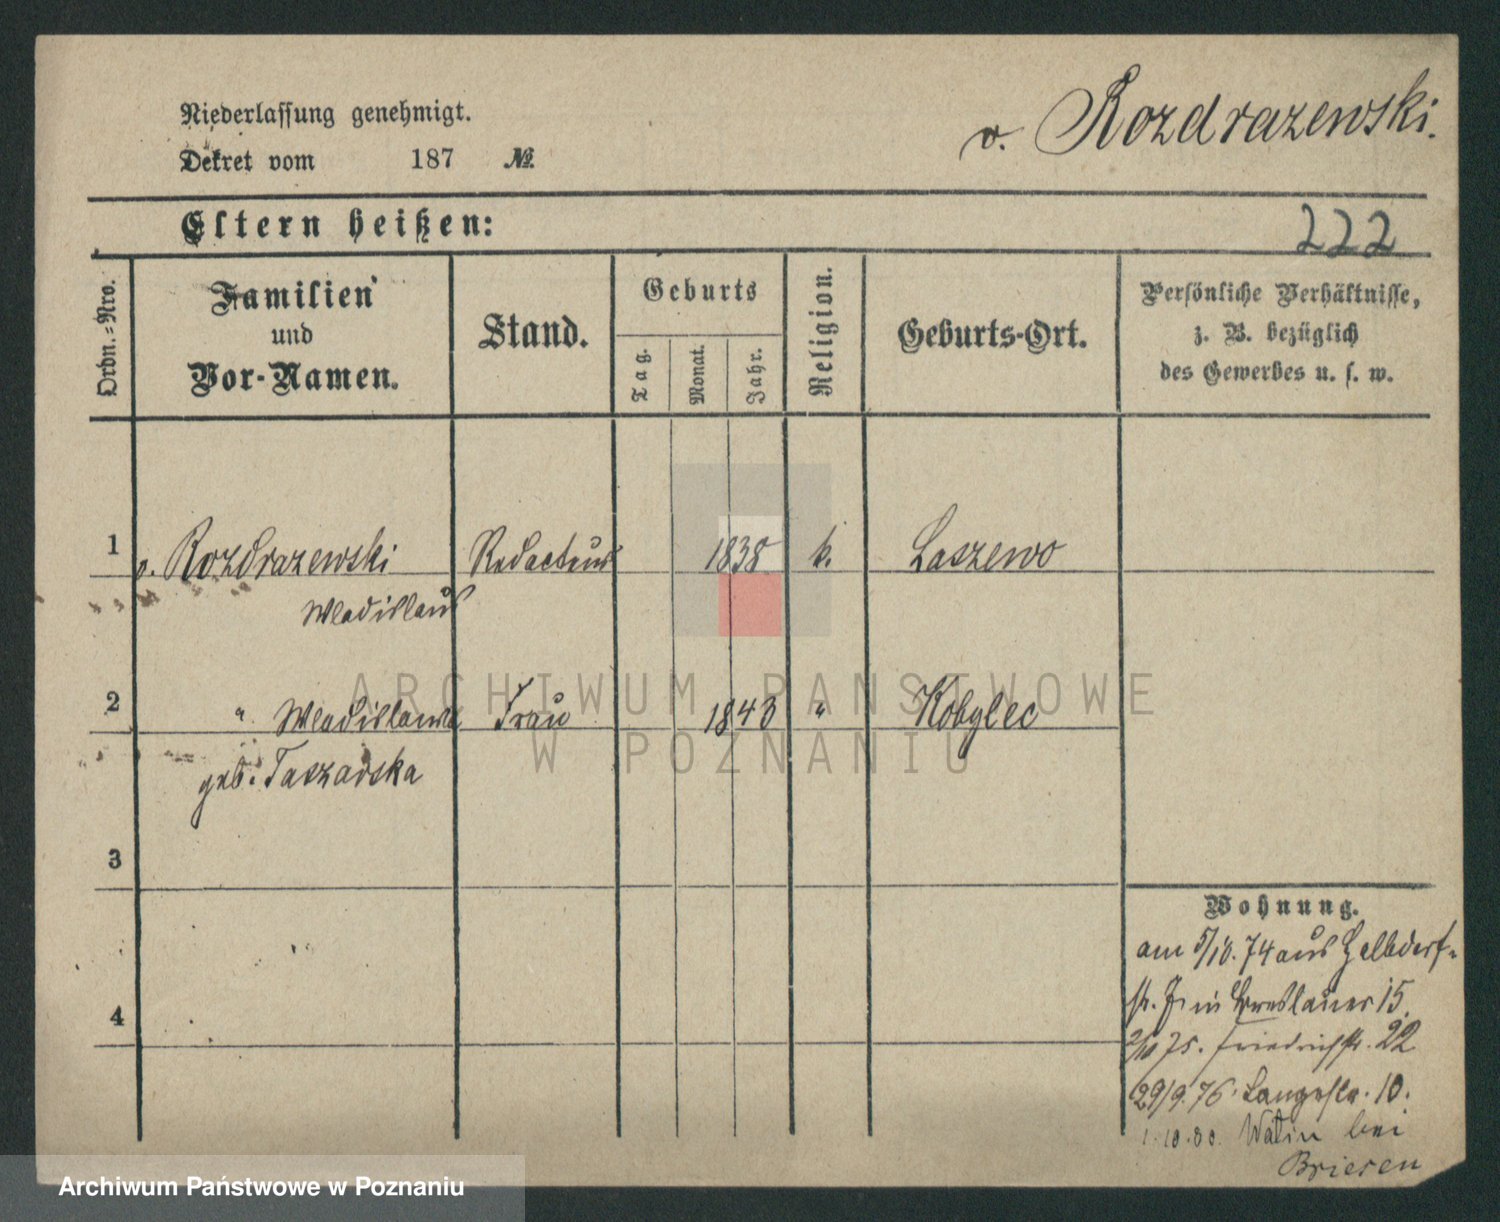 Niederlassung genehmigt.
Dekret vom 187 №.
v. Rozdrazewski.
Eltern heißen:
222
Ordn.=Nro.
Familien
und
Vor-Namen.
Stand.
Geburts
Tag.
Monat.
Jahr.
Religion.
Geburts-Ort.
Persönliche Verhältnisse,
z. B. bezüglich
des Gewerbes u. s. w.
1 v. Rozdrazewski Redacteur 1838 k. Laszewo
Wladislaus
2 " Wladislawa Frau 1843 " Kobylec
geb. Taszarska
3
4
Wohnung.
am 5/10. 74 aus Halbdorf-
str. 7 in Breslauer 15.
2/10 75. Friedrichstr. 22
29/9. 76. Langestr. 10.
1.10.80. Watin bei
Briesen
ARCHIWUM PAŃSTWOWE
W POZNANIU
Archiwum Państwowe w Poznaniu